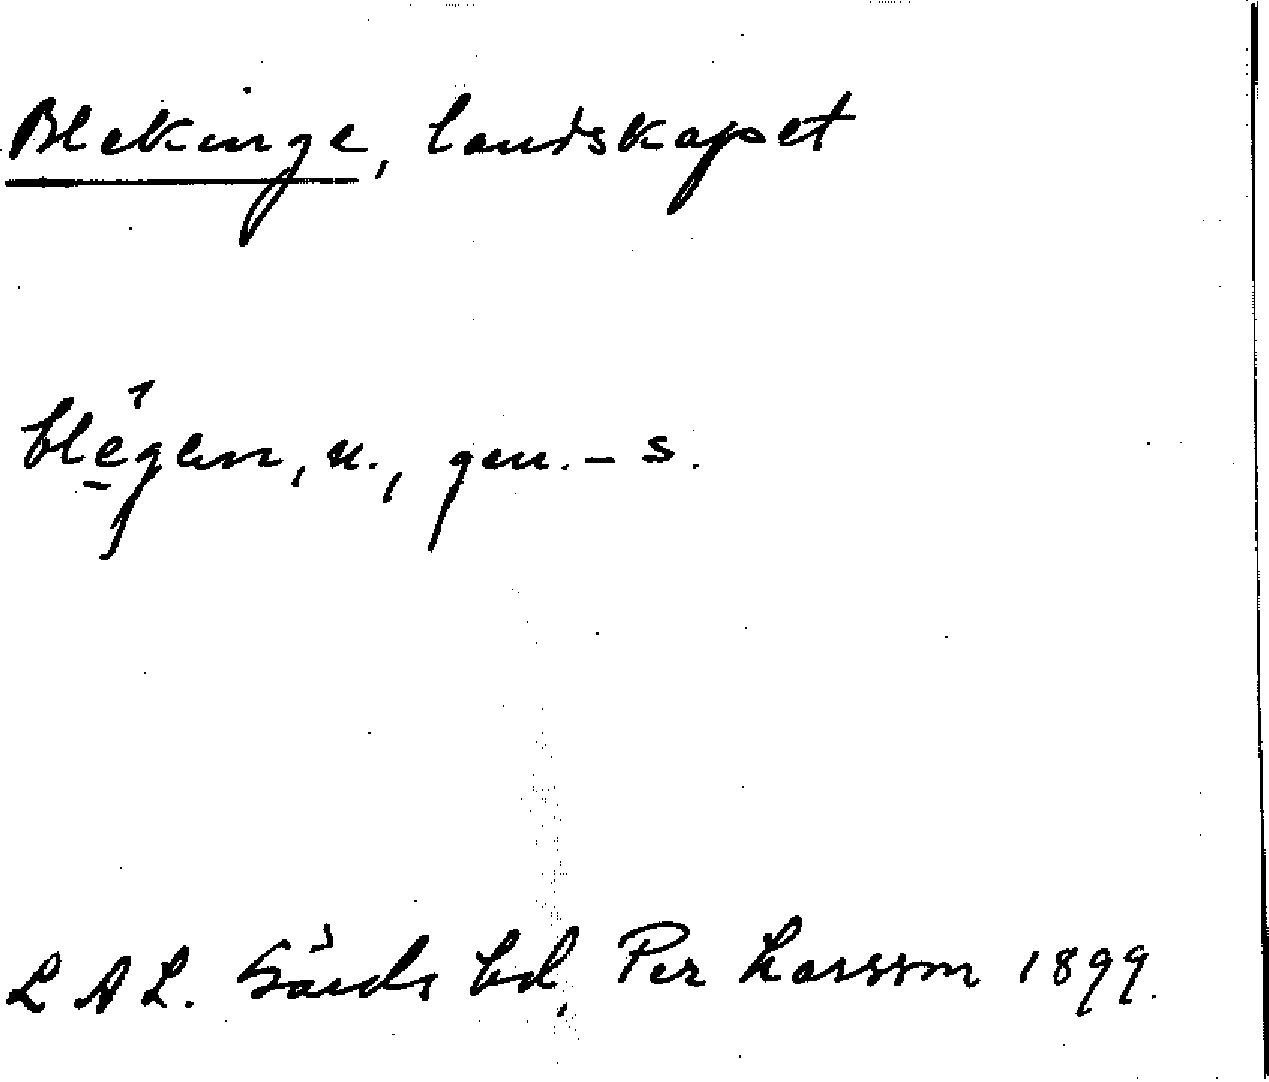 Blekinge, landskapet
blēgen, n., gen. – s.
L A L. Särds bd, Per Larsson 1899.